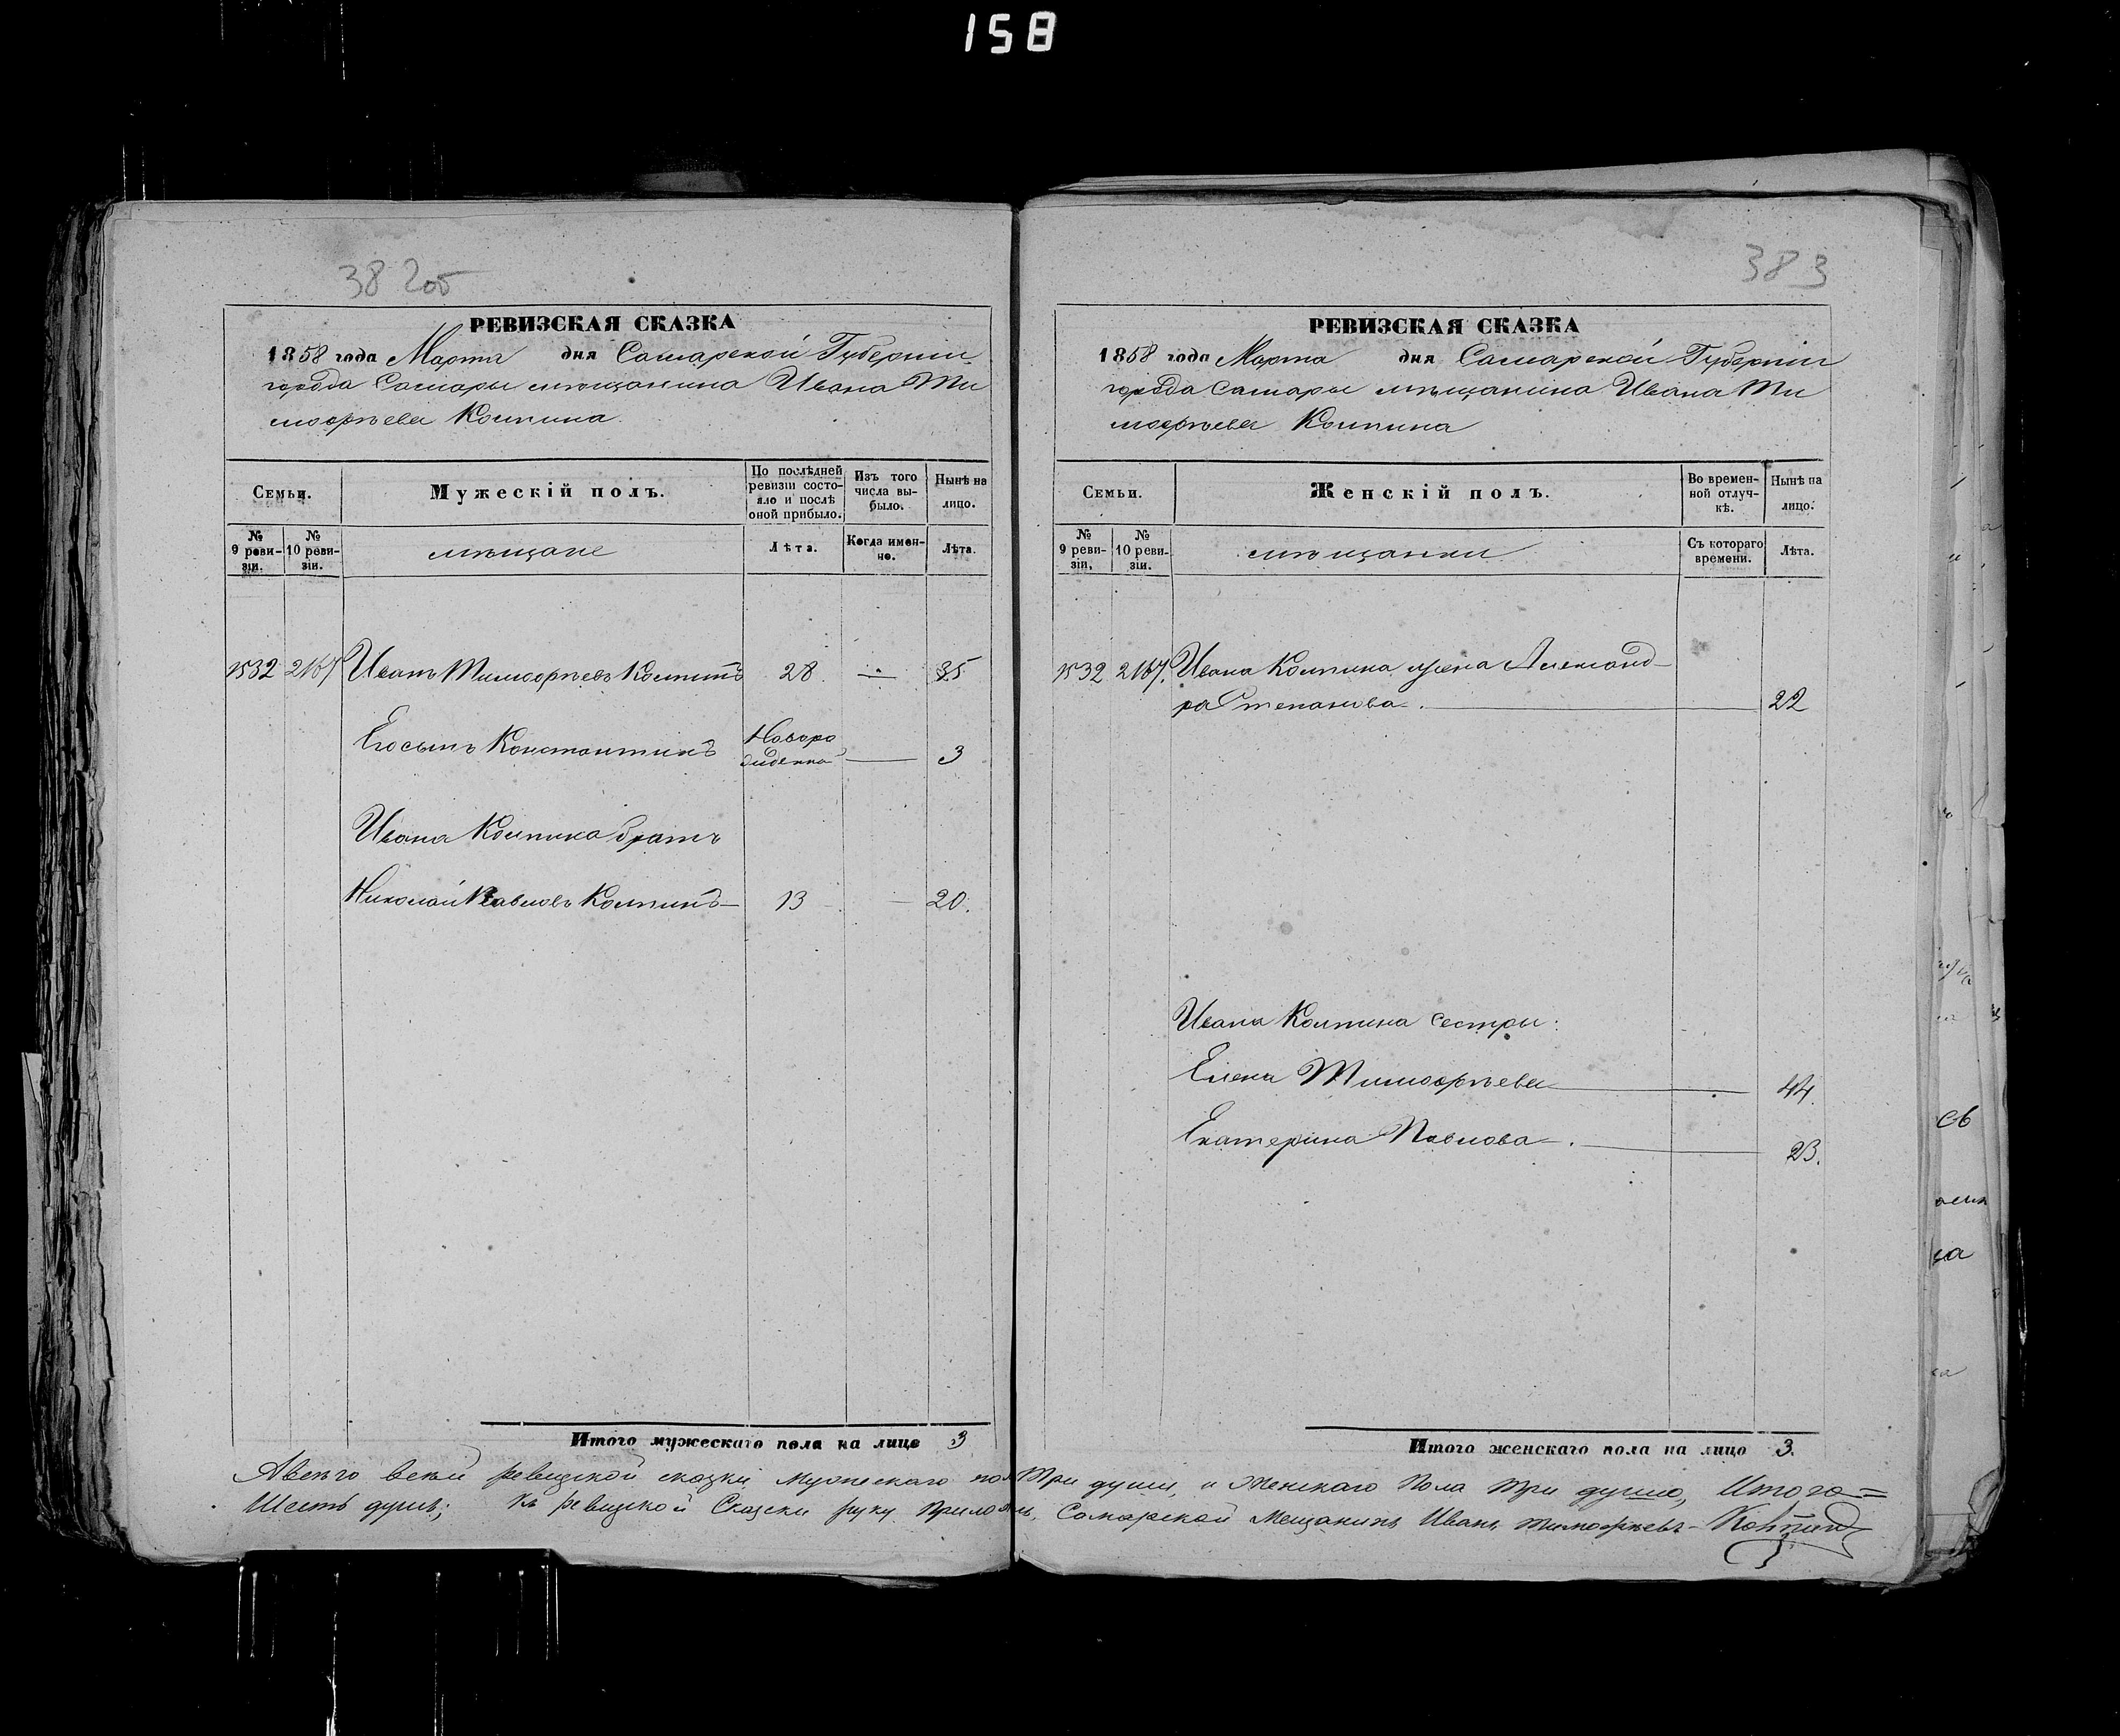 158
382об
РЕВИЗСКАЯ СКАЗКА
1858 года Марта дня Самарской Губерніи
города Самары мѣщанина Ивана Ти
мофѣева Колпина
Семьи.
Мужескій полъ.
По послѣдней ревизіи состояло и послѣ оной прибыло.
Изъ того числа выбыло.
Нынѣ на лицо.
№ 9 ревизіи.
№ 10 ревизіи.
мѣщане
Лѣта.
Когда именно.
Лѣта.
1532 2167 Иванъ Тимофѣевъ Колпинъ 28. — 35
Его сынъ Константинъ Новорожденной — 3
Ивана Колпина братъ
Николай Павловъ Колпинъ — 13 — 20.
Итого мужескаго пола на лицо 3
383
РЕВИЗСКАЯ СКАЗКА
1858 года Марта дня Самарской Губерніи
города Самары мѣщанина Ивана Ти
мофѣева Колпина
Семьи.
Женскій полъ.
Во временной отлучкѣ.
Нынѣ на лицо.
№ 9 ревизіи.
№ 10 ревизіи.
мѣщанки
Съ котораго времени.
Лѣта.
1532 2167. Ивана Колпина жена Александ-
ра Степанова. — 22
Ивана Колпина сестры:
Елена Тимофѣева — 44.
Екатерина Павлова — 23.
Итого женскаго пола на лицо 3.
ревизкой сказки Мужескаго пол Три души, и Женскаго Пола три души, Итого =
Шесть душъ; Къ ревизкой Сказки руку приложилъ, Самарской Мещанинъ Иванъ Тимофѣевъ - Колпинъ